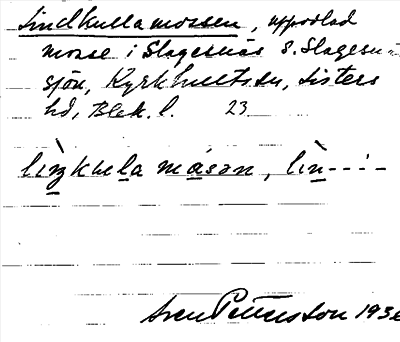 Lindkullamossen, uppodlad
mosse i Slagesnäs S. Slagesnä-
sjön, Kyrkhults sn, Listers
hd, Blek. l. 23
liŋkula måsan, lin---'-
Sven Pettersson 193